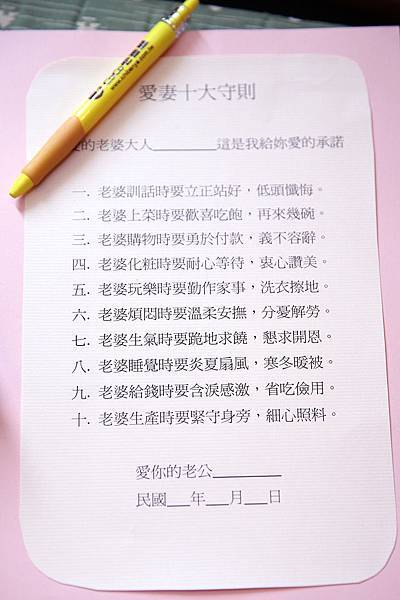 愛妻十大守則
的老婆大人________這是我給妳愛的承諾
一. 老婆訓話時要立正站好，低頭懺悔。
二. 老婆上菜時要歡喜吃飽，再來幾碗。
三. 老婆購物時要勇於付款，義不容辭。
四. 老婆化粧時要耐心等待，衷心讚美。
五. 老婆玩樂時要勤作家事，洗衣擦地。
六. 老婆煩悶時要溫柔安撫，分憂解勞。
七. 老婆生氣時要跪地求饒，懇求開恩。
八. 老婆睡覺時要炎夏扇風，寒冬暖被。
九. 老婆給錢時要含淚感激，省吃儉用。
十. 老婆生產時要緊守身旁，細心照料。
愛你的老公________
民國___年___月___日